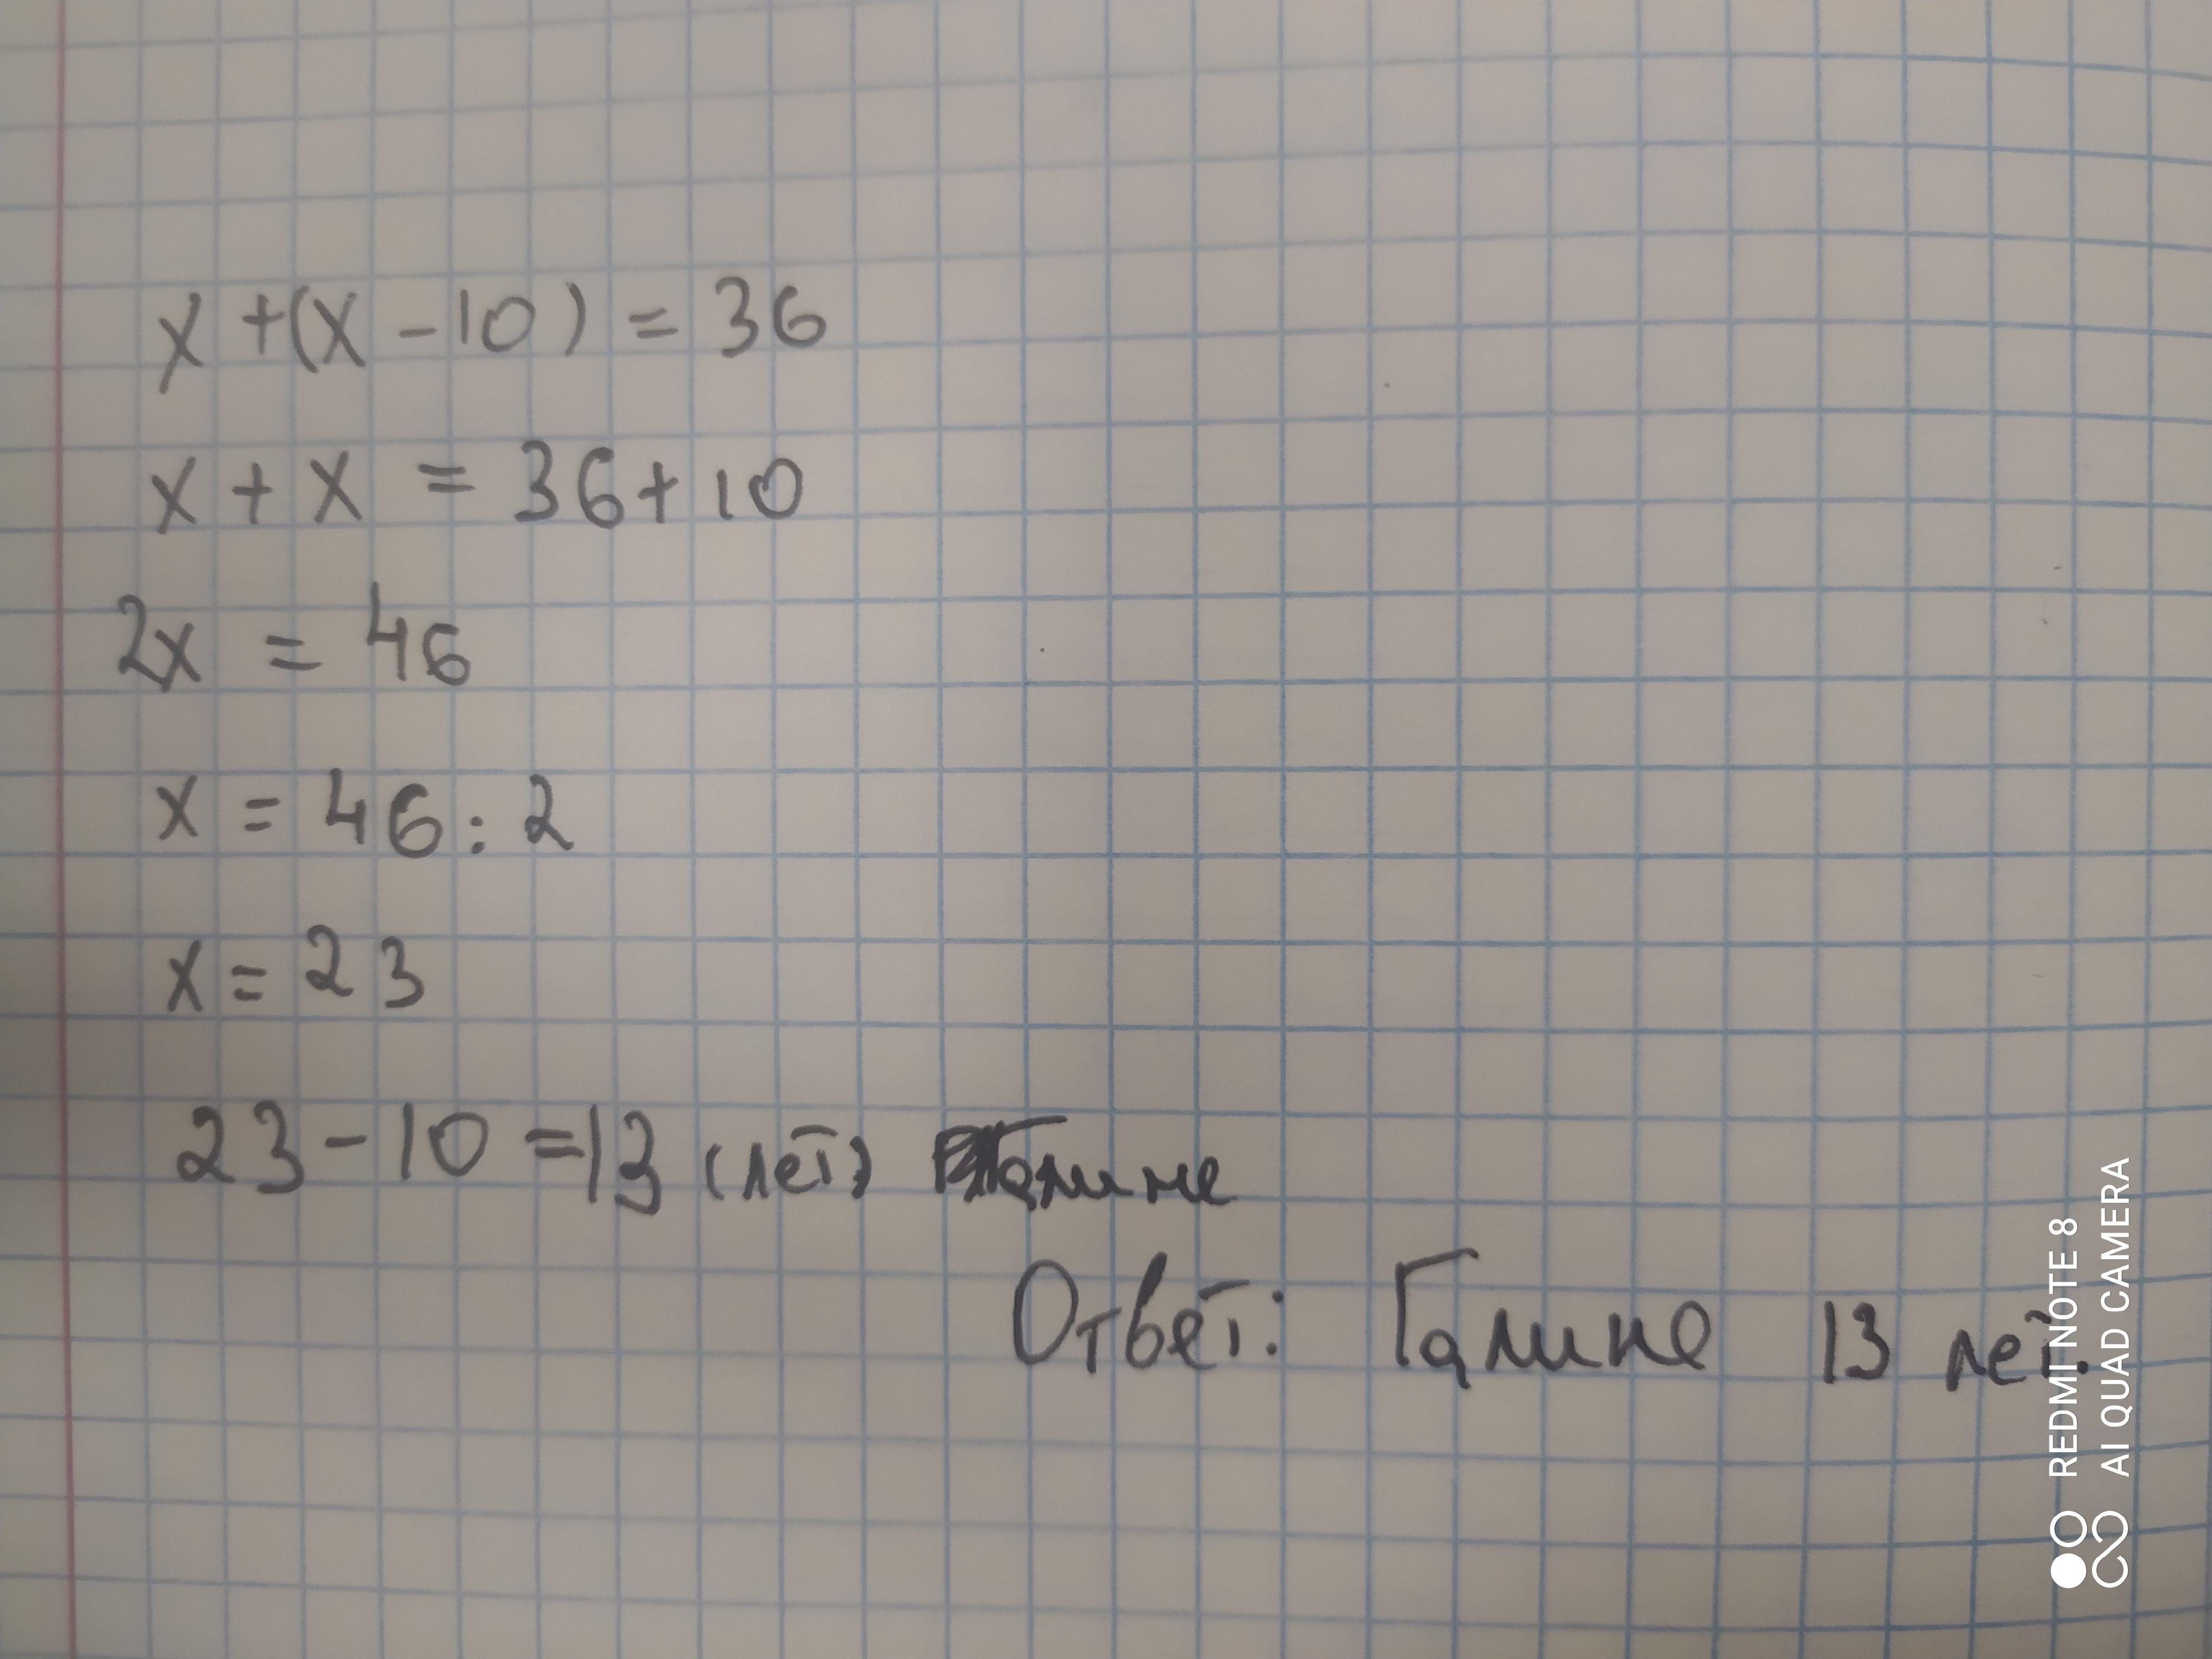 x + (x - 10) = 36
x + x = 36 + 10
2x = 46
x = 46 : 2
x = 23
23 - 10 = 13 (лет) Галине
Ответ: Галине 13 лет.
REDMI NOTE 8
AI QUAD CAMERA